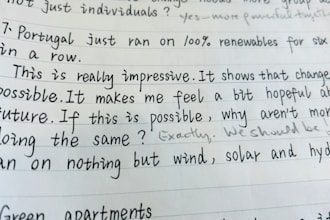 not just individuals? yes—more powerful
7. Portugal just ran on 100% renewables for six
in a row.
This is really impressive. It shows that change
possible. It makes me feel a bit hopeful ab
future. If this is possible, why aren't mor
doing the same? Exactly. We should be
an on nothing but wind, solar and hyd
Green apartments